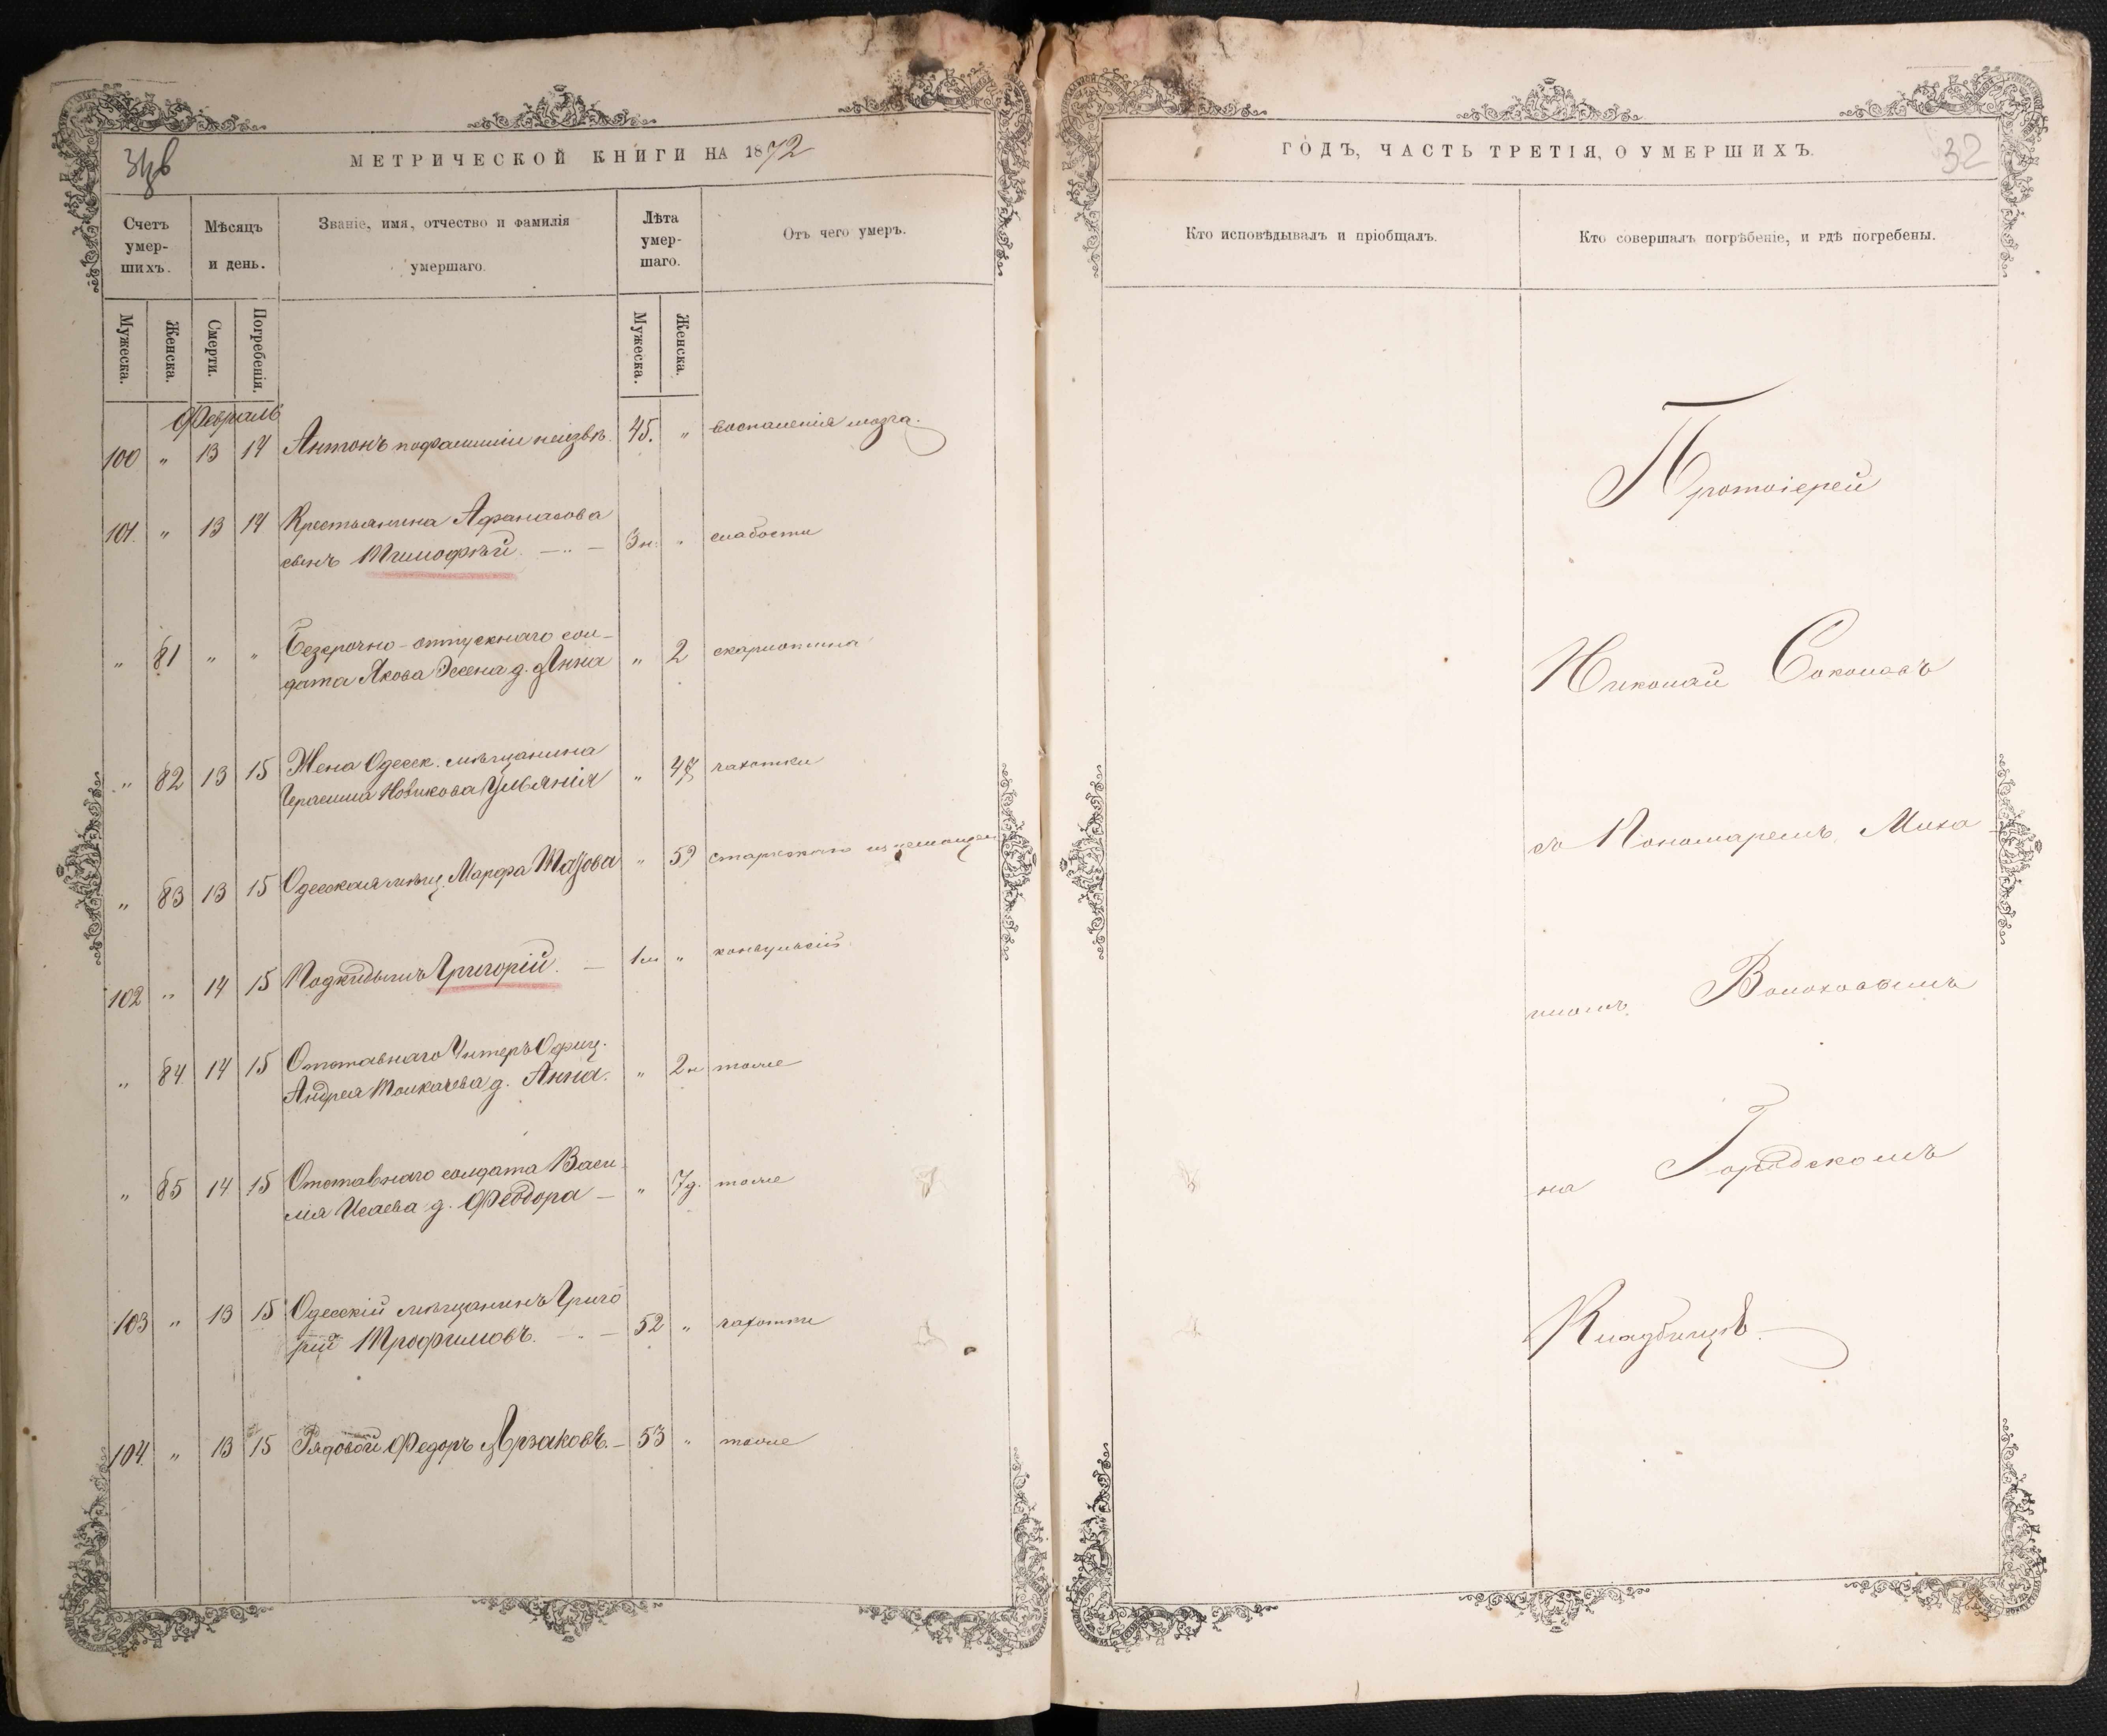 МЕТРИЧЕСКОЙ КНИГИ НА 1872
Счетъ умер-шихъ.
Мѣсяцъ и день.
Званіе, имя, отчество и фамилія умершаго.
Лѣта умер-шаго.
Отъ чего умеръ.
Мужеска.
Женска.
Смерти.
Погребенія.
Мужеска.
Женска.
Февраль
100 „ 13 14 Антонъ по фамиліи неизвѣ. 45. „ воспаленія мозга.
101. „ 13 14 Крестьянина Афанасова
сынъ Тимофѣй. 3н. „ слабости
„ 81 „ „ Безсрочно-отпускнаго сол-
дата Якова Эсена д. Анна „ 2 скарлатина
„ 82 13 15 Жена Одесск. мѣщанина
Герасима Новикова Ульянія „ 47 чахотки
„ 83 13 15 Одесская мѣщ. Марфа „ 59
102 „ 14 15 Подкидышъ Григорій. – 1м „ конвульсій
„ 84 14 15 Отставнаго Унтеръ Офиц.
Андрея Толкачева д. Анна. „ 2н тоже
„ 85 14 15 Отставнаго солдата Васи-
лія Исаева д. Феодора – „ 7д. тоже
103 „ 13 15 Одесскій мѣщанинъ Григо
рій Трофимовъ. – 52 „ чахотки
104. „ 13 15 Рядовой Федоръ Арзаковъ. – 53 „ тоже
ГОДЪ, ЧАСТЬ ТРЕТІЯ, О УМЕРШИХЪ.
32
Кто исповѣдывалъ и пріобщалъ.
Кто совершалъ погрѣбеніе, и гдѣ погребены.
Протоіерей
Николай Соколовъ
съ Пономаремъ Миха
иломъ Волоховымъ
на Городскомъ
Кладбищѣ.